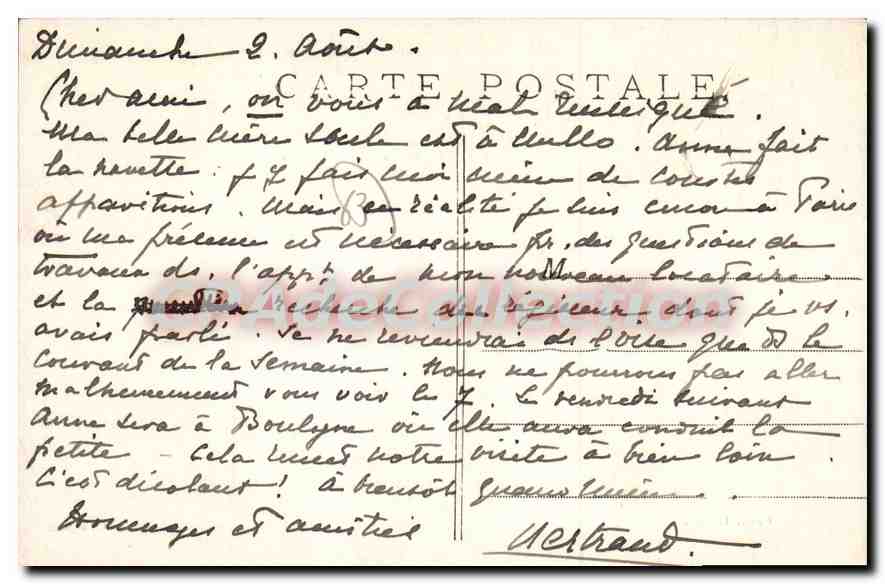 Dimanche 2. Août.
CARTE POSTALE
Cher ami, on vous a mal renseigné.
Ma belle mère seule est à Mello. Anne fait
la navette. J'y fais moi même de courtes
apparitions. Mais en réalité je suis encore à Paris
où ma présence est nécessaire pr. des questions de
travaux ds. l'appt de mon nouveau locataire
M
et la recherche du régisseur dont je vs.
CPAdeCollection
avais parlé. Je ne reviendrai ds l'Oise que ds le
courant de la semaine. Nous ne pourrons pas aller
malheureusement vous voir le 7. Le vendredi suivant
Anne sera à Boulogne où elle aura conduit la
petite — Cela remet notre visite à bien loin.
C'est désolant! À bientôt quand même.
Hommages et amitiés
Bertrand.